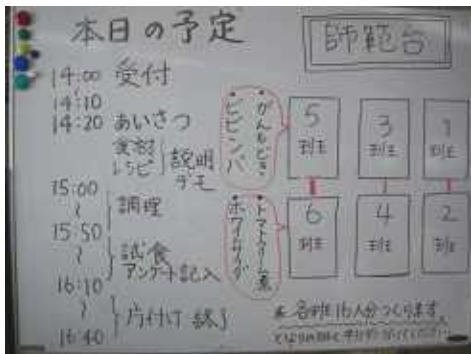 本日の予定
師範台
14:00 受付
14:10
14:20 あいさつ
食材
レシピ
説明
デモ
15:00
〜
調理
15:50
〜
試食
アンケート記入
16:10
〜
片付け
16:40
・がんもどき
・ビビンバ
・トマトクリーム煮
5
班
3
班
1
班
6
班
4
班
2
班
※各班16人分つくります。